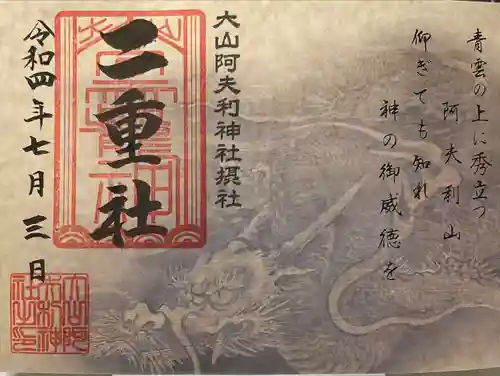 青雲の上に秀立つ
阿夫利山
仰ぎても知れ
神の御威徳を
大山阿夫利神社摂社
二重社
令和四年七月三日